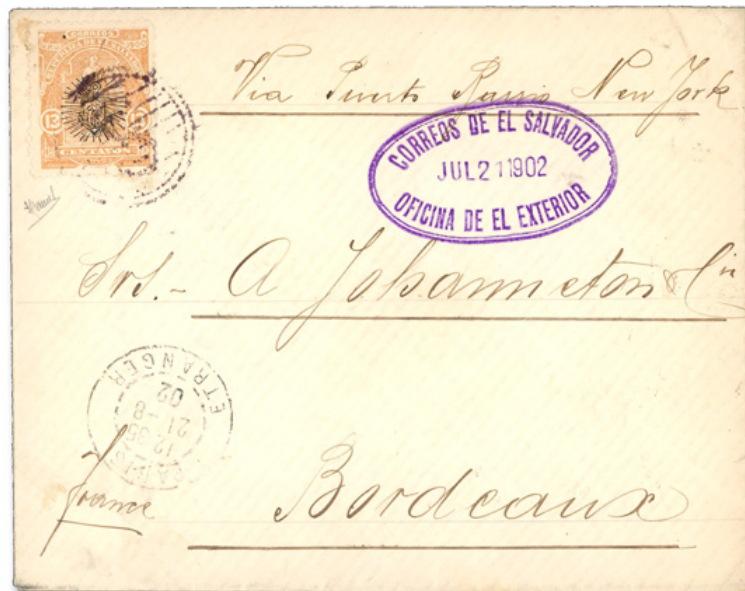 CORREOS
13
CENTAVOS
Via Puerto Barrios New York
CORREOS DE EL SALVADOR
JUL 21 1902
OFICINA DE EL EXTERIOR
Srs.- A Johanneton & Cie
PARIS
12 35
21 - 8
02
ETRANGER
France
Bordeaux